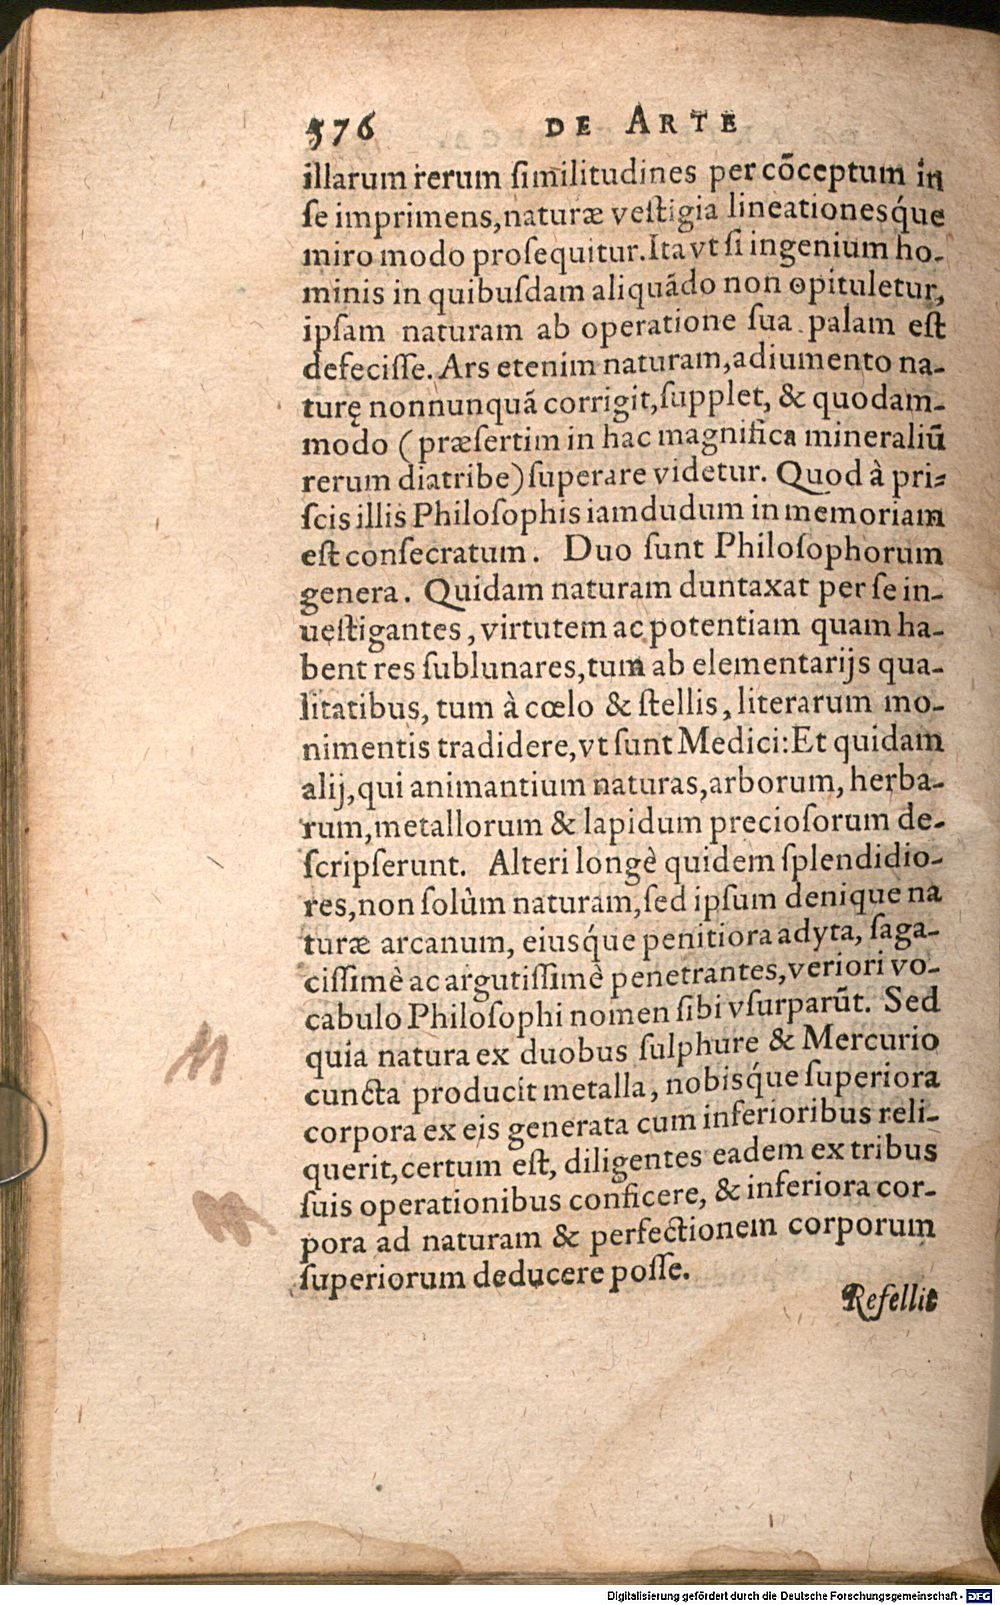 576 DE ARTE
illarum rerum ſimilitudines per cõceptum in
ſe imprimens, naturæ veſtigia lineationesq́ue
miro modo proſequitur. Ita vt ſi ingenium ho-
minis in quibuſdam aliquãdo non opituletur,
ipſam naturam ab operatione ſua palam eſt
defeciſſe. Ars etenim naturam, adiumento na-
turę nonnunquã corrigit, ſupplet, & quodam-
modo (præſertim in hac magnifica mineraliũ
rerum diatribe) ſuperare videtur. Quod à pri-
ſcis illis Philoſophis iamdudum in memoriam
eſt conſecratum. Duo ſunt Philoſophorum
genera. Quidam naturam duntaxat per ſe in-
ueſtigantes, virtutem ac potentiam quam ha-
bent res ſublunares, tum ab elementarijs qua-
litatibus, tum à cœlo & ſtellis, literarum mo-
nimentis tradidere, vt ſunt Medici: Et quidam
alij, qui animantium naturas, arborum, herba-
rum, metallorum & lapidum precioſorum de-
ſcripſerunt. Alteri longè quidem ſplendidio-
res, non ſolùm naturam, ſed ipſum denique na
turæ arcanum, eiusq́ue penitiora adyta, ſaga-
ciſſimè ac argutiſſimè penetrantes, veriori vo-
cabulo Philoſophi nomen ſibi vſurparũt. Sed
quia natura ex duobus ſulphure & Mercurio
cuncta producit metalla, nobisq́ue ſuperiora
corpora ex eis generata cum inferioribus reli-
querit, certum eſt, diligentes eadem ex tribus
ſuis operationibus conficere, & inferiora cor-
pora ad naturam & perfectionem corporum
ſuperiorum deducere poſſe.
Refellit
Digitalisierung gefördert durch die Deutsche Forschungsgemeinschaft - DFG